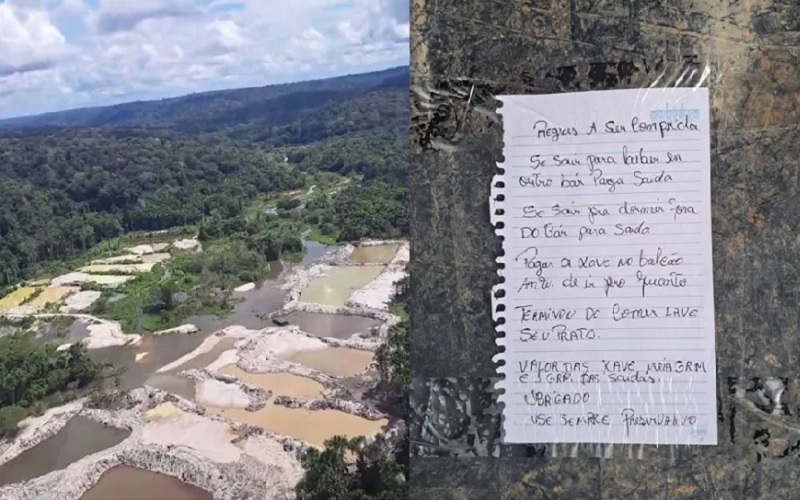 Regras A Ser Comprida
Se Sair para beber em
outro bár Paga Saida
Se Sair pra dormir Fora
DO Bár paga Saida
Pagar a xave no balcão
Antes de ir pro Quarto
TERMINOU DE Comer LAVE
SEU PRATO.
VALOR DAS XAVE MEIA GRM
E 5 GRM DAS SAIDAS
OBRIGADO
USE SEMPRE PRESERVATIVO